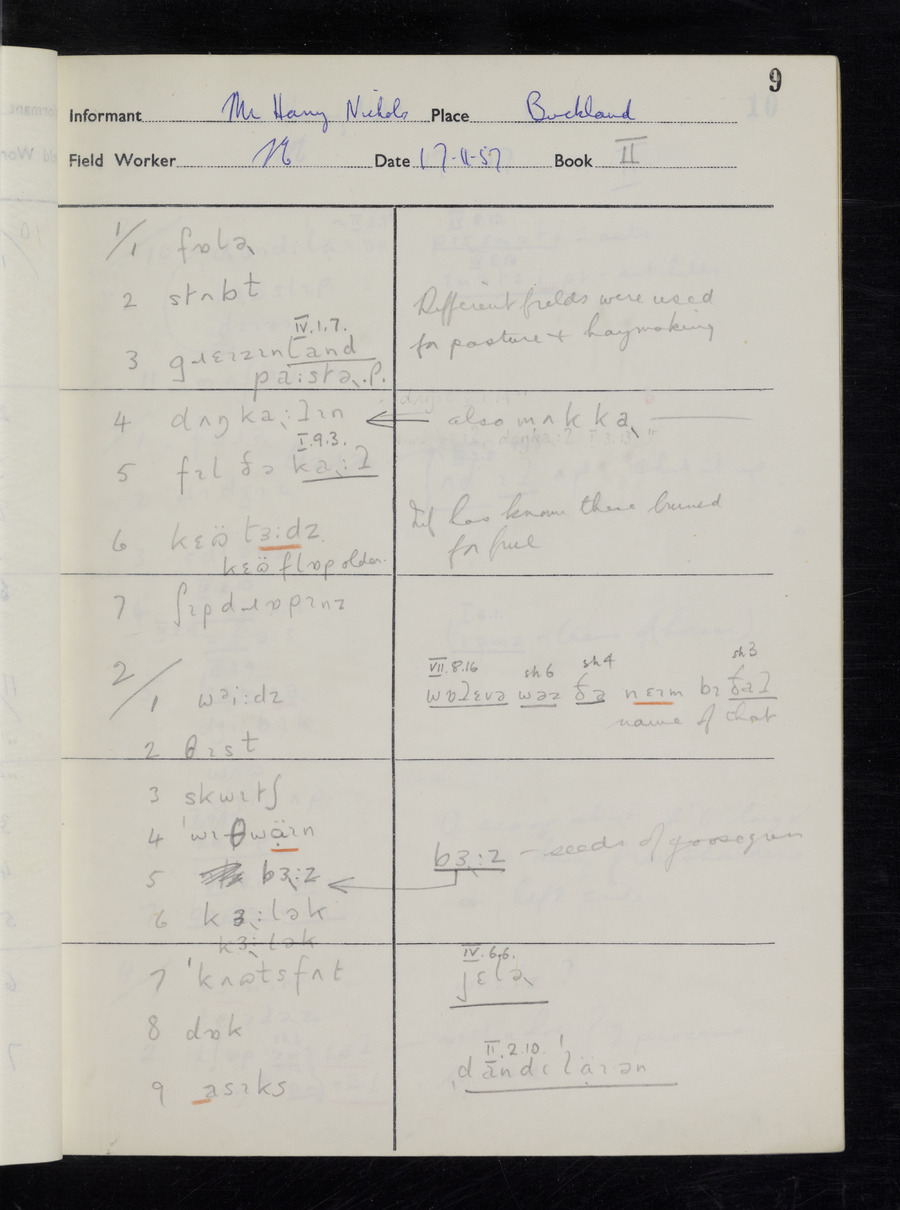 9
Informant Mr Harry Nichols Place Buckland
Field Worker Date 17-11-57 Book II
1/1 fɒlə˞
2 stʌbt
Different fields were used
for pasture & haymaking
IV.1.7.
3 gɹɛɪzɪnland
pa:stə˞.p.
4 dʌŋka˞:lɪn ← also mʌkka˞
I.9.3.
5 fɪl ðə ka˞:l
Inf has known these burned
for fuel
6 kɛɷ̈ tɜ:dz
kɛɷ̈ flɒp older
7 ʃɪpdɹɒpɪnz
VII.8.16 sh 6 sh 4 sh 3
2/1 wəi:dz
wɒlɛvə wəz ðə nɛɪm bɪ ðal
name of that
2 θɪst
3 skwɪtʃ
4 ˈwɪθwäɪn
5 bɜ˞:z ← bɜ˞:z – seeds of goosegrass
6 kɜ˞:lək
kɜ˞:lək
7 ˈkʌɷtsfʌt
IV.6.6.
jɛlə˞
8 dɒk
II.2.10.
ˌdändɪˈläɪən
9 asɪks